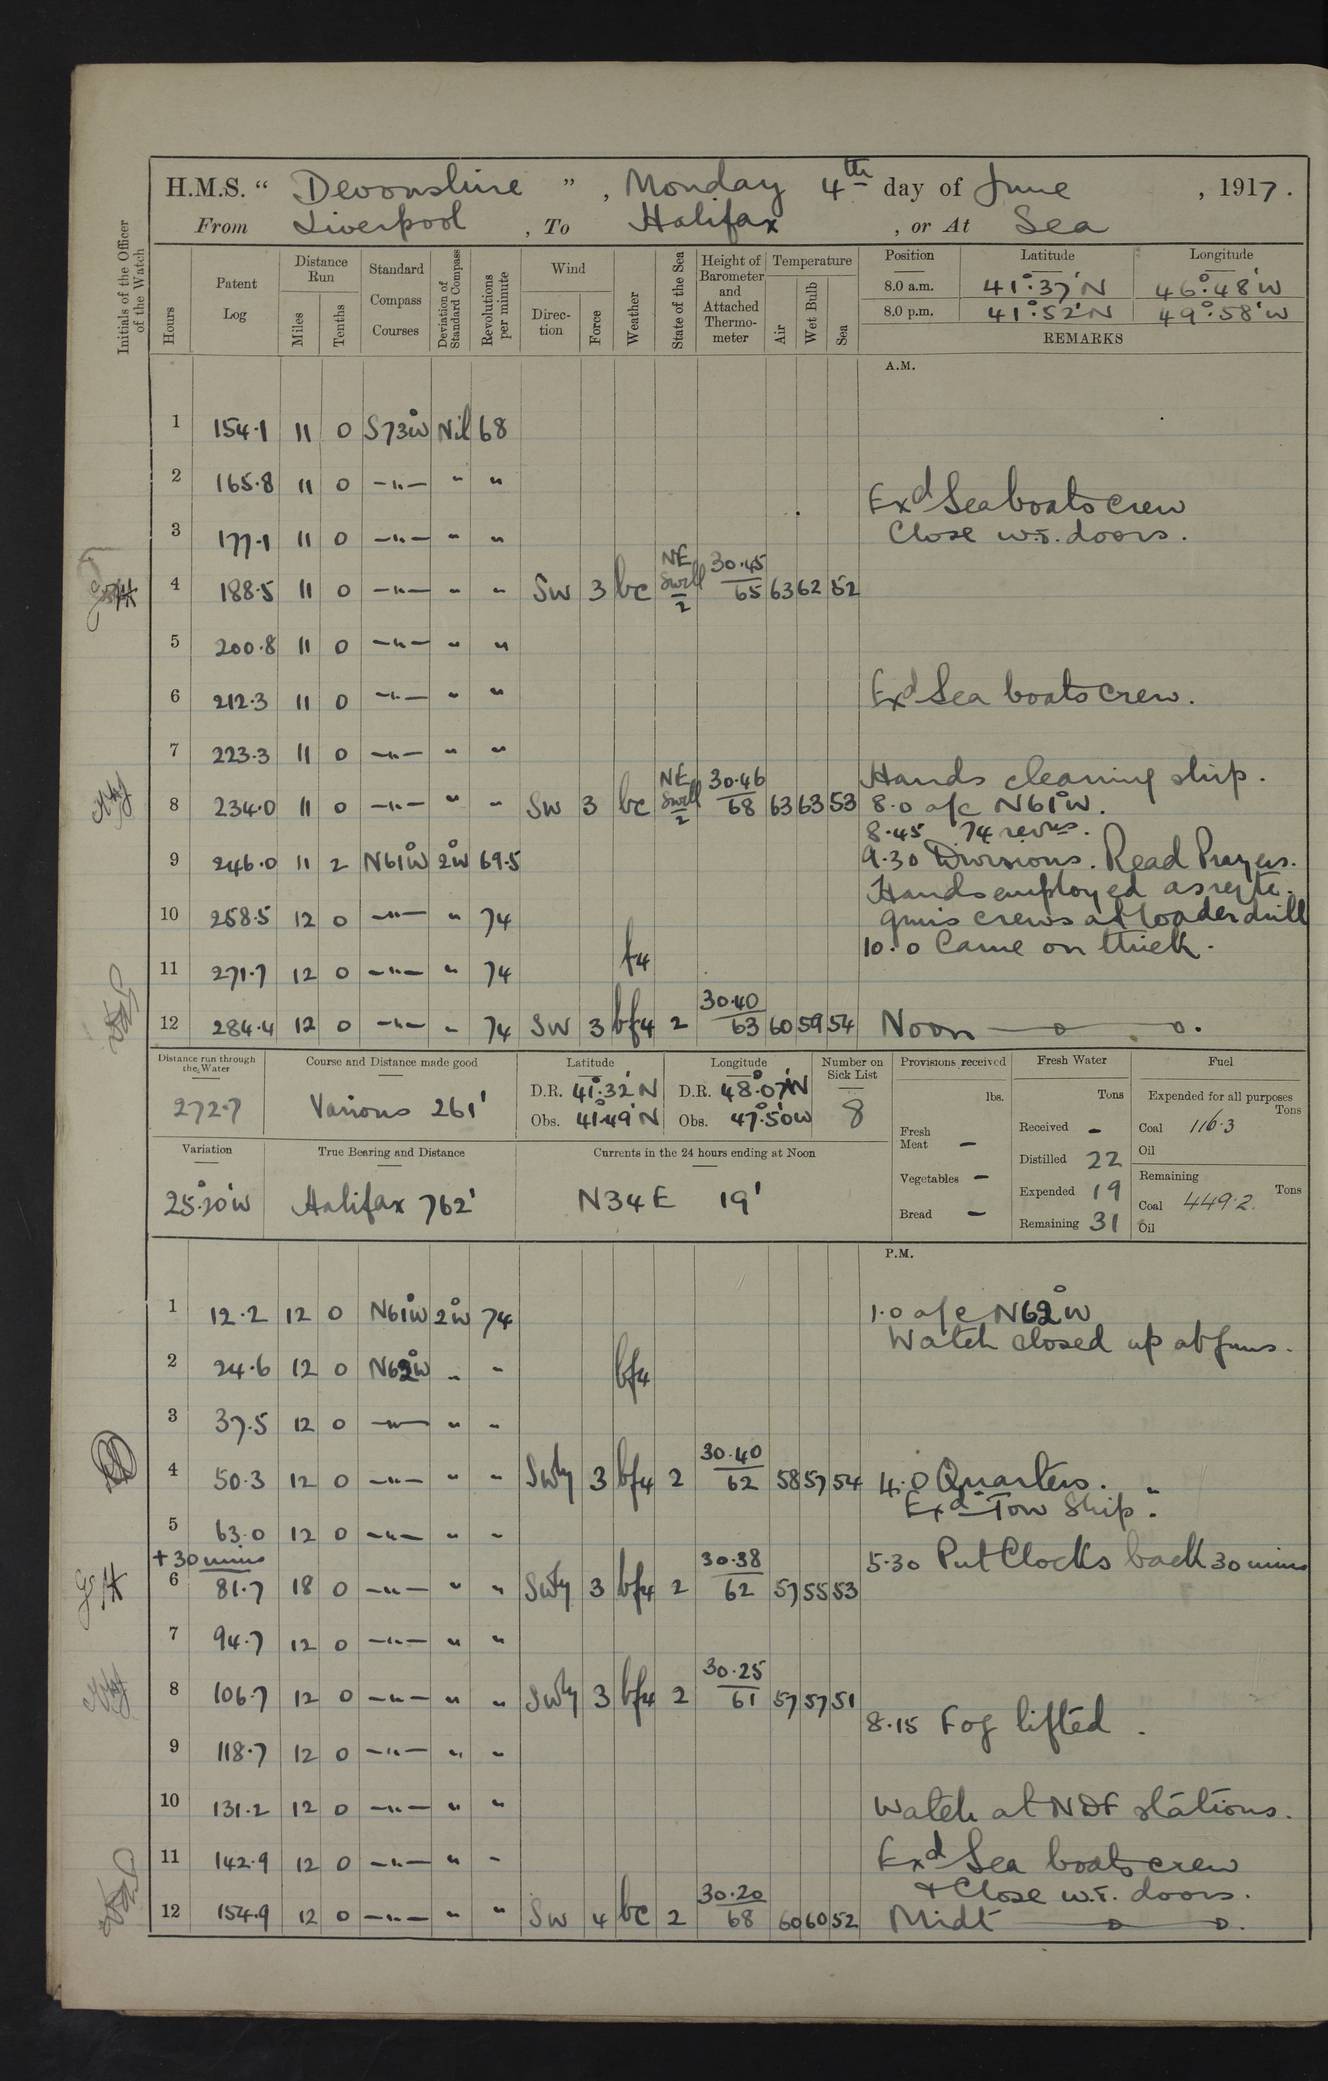 H.M.S. “ Devonshire ” , Monday 4th day of June , 1917.
From Liverpool , To Halifax , or At Sea
Initials of the Officer of the Watch
Hours
Patent Log
Distance Run
Miles
Tenths
Standard Compass Courses
Deviation of Standard Compass
Revolutions per minute
Wind
Direc-tion
Force
Weather
State of the Sea
Height of Barometer and Attached Thermo-meter
Temperature
Air
Wet Bulb
Sea
Position Latitude Longitude
8.0 a.m. 41°.37'N 46°.48'W
8.0 p.m. 41°.52'N 49°.58'W
REMARKS
A.M.
1 154.1 11 0 S73°W Nil 68
2 165.8 11 0 -"- " "
Exd Sea boats crew
3 177.1 11 0 -"- " "
Close w.T. doors.
4 188.5 11 0 -"- " " SW 3 bc NE Swell 2 30.45 65 63 62 52
5 200.8 11 0 -"- " "
6 212.3 11 0 -"- " " Exd Sea boats crew.
7 223.3 11 0 -"- " "
Hands cleaning ship.
8 234.0 11 0 -"- " " SW 3 bc NE Swell 2 30.46 68 63 63 53 8.0 a/c N61°W.
8.45 74 revns.
9 246.0 11 2 N61°W 2°W 69.5 9.30 Divisions. Read Prayers.
Hands employed as reqte.
10 258.5 12 0 -"- " 74 guns crews at loader drill
10.0 Came on thick.
11 271.7 12 0 -"- " 74 f4
12 284.4 12 0 -"- " 74 SW 3 bf4 2 30.40 63 60 59 54 Noon
Distance run through the Water
272.7
Course and Distance made good
Various 261'
Latitude
D.R. 41°.32'N
Obs. 41°.49'N
Longitude
D.R. 48°.07'W
Obs. 47°.50'W
Number on Sick List
8
Provisions received
lbs.
Fresh Meat -
Vegetables -
Bread -
Fresh Water
Tons
Received -
Distilled 22
Expended 19
Remaining 31
Fuel
Expended for all purposes
Tons
Coal 116.3
Oil
Remaining
Tons
Coal 449.2.
Oil
Variation
25°.20'W
True Bearing and Distance
Halifax 762'
Currents in the 24 hours ending at Noon
N34E 19'
P.M.
1 12.2 12 0 N61°W 2°W 74 1.0 a/c N62°W
Watch closed up at guns.
2 24.6 12 0 N62°W " " bf4
3 37.5 12 0 -"- " "
4 50.3 12 0 -"- " " SWly 3 bf4 2 30.40 62 58 57 54 4.0 Quarters.
Exd Tow Ship.
5 63.0 12 0 -"- " "
+30 mins 5.30 Put Clocks back 30 mins
6 81.7 18 0 -"- " " SWly 3 bf4 2 30.38 62 57 55 53
7 94.7 12 0 -"- " "
8 106.7 12 0 -"- " " SWly 3 bf4 2 30.25 61 57 57 51
8.15 Fog lifted .
9 118.7 12 0 -"- " "
10 131.2 12 0 -"- " " Watch at NDF stations.
11 142.9 12 0 -"- " - Exd Sea boats crew
+ Close w.T. doors.
12 154.9 12 0 -"- " " SW 4 bc 2 30.20 68 60 60 52 Midt